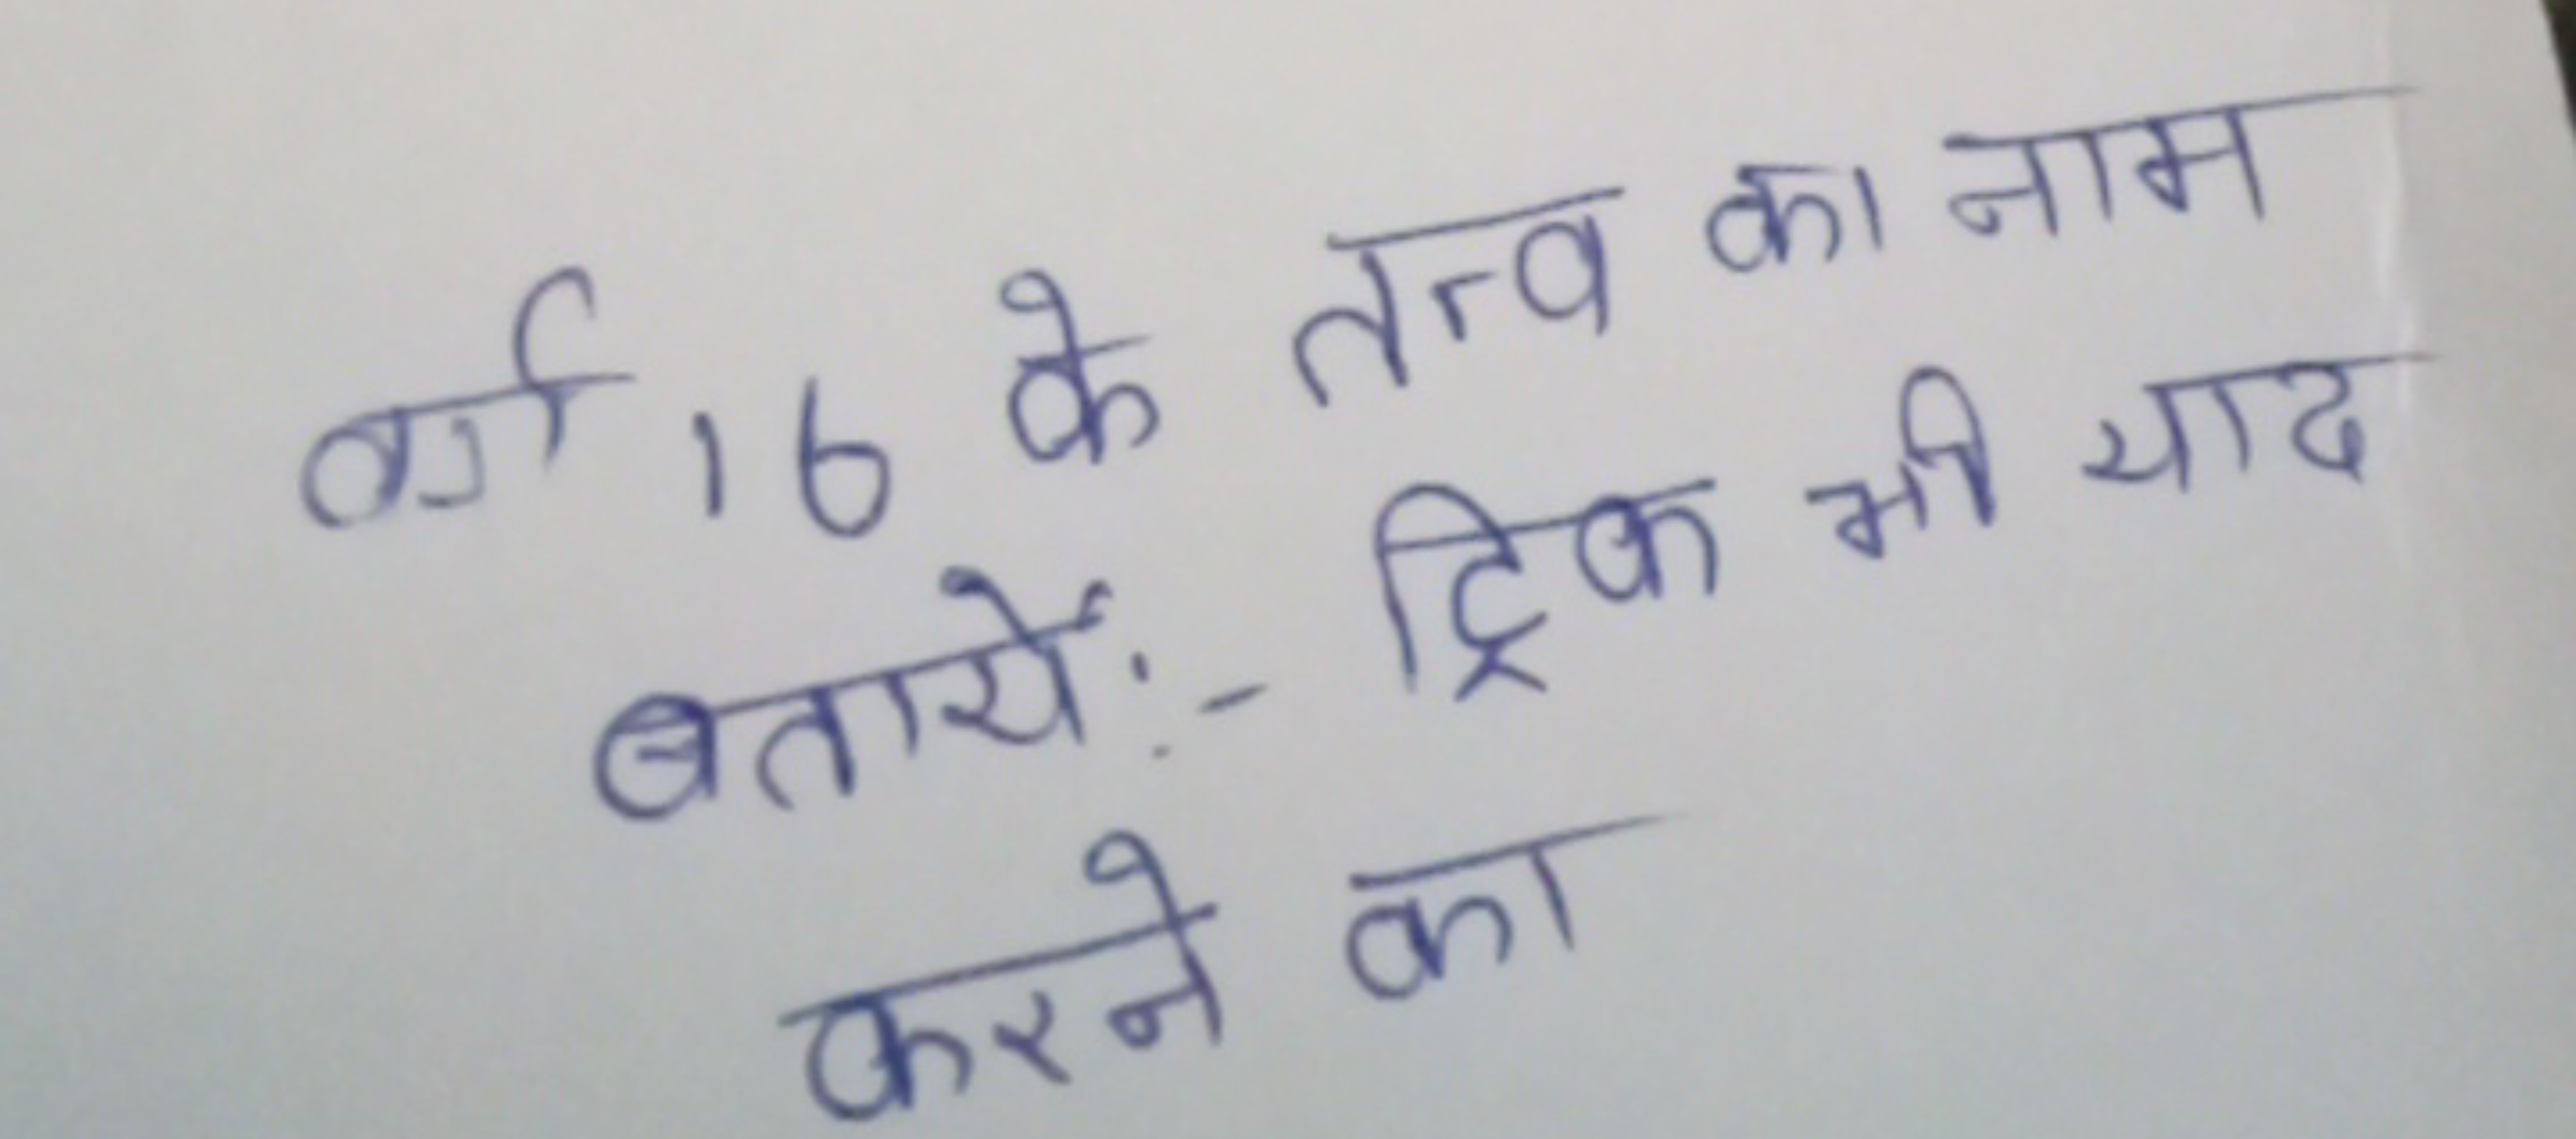 वर्ग 16 के तत्व का नाम
बतायें:- ट्रिक भी याद
करने का